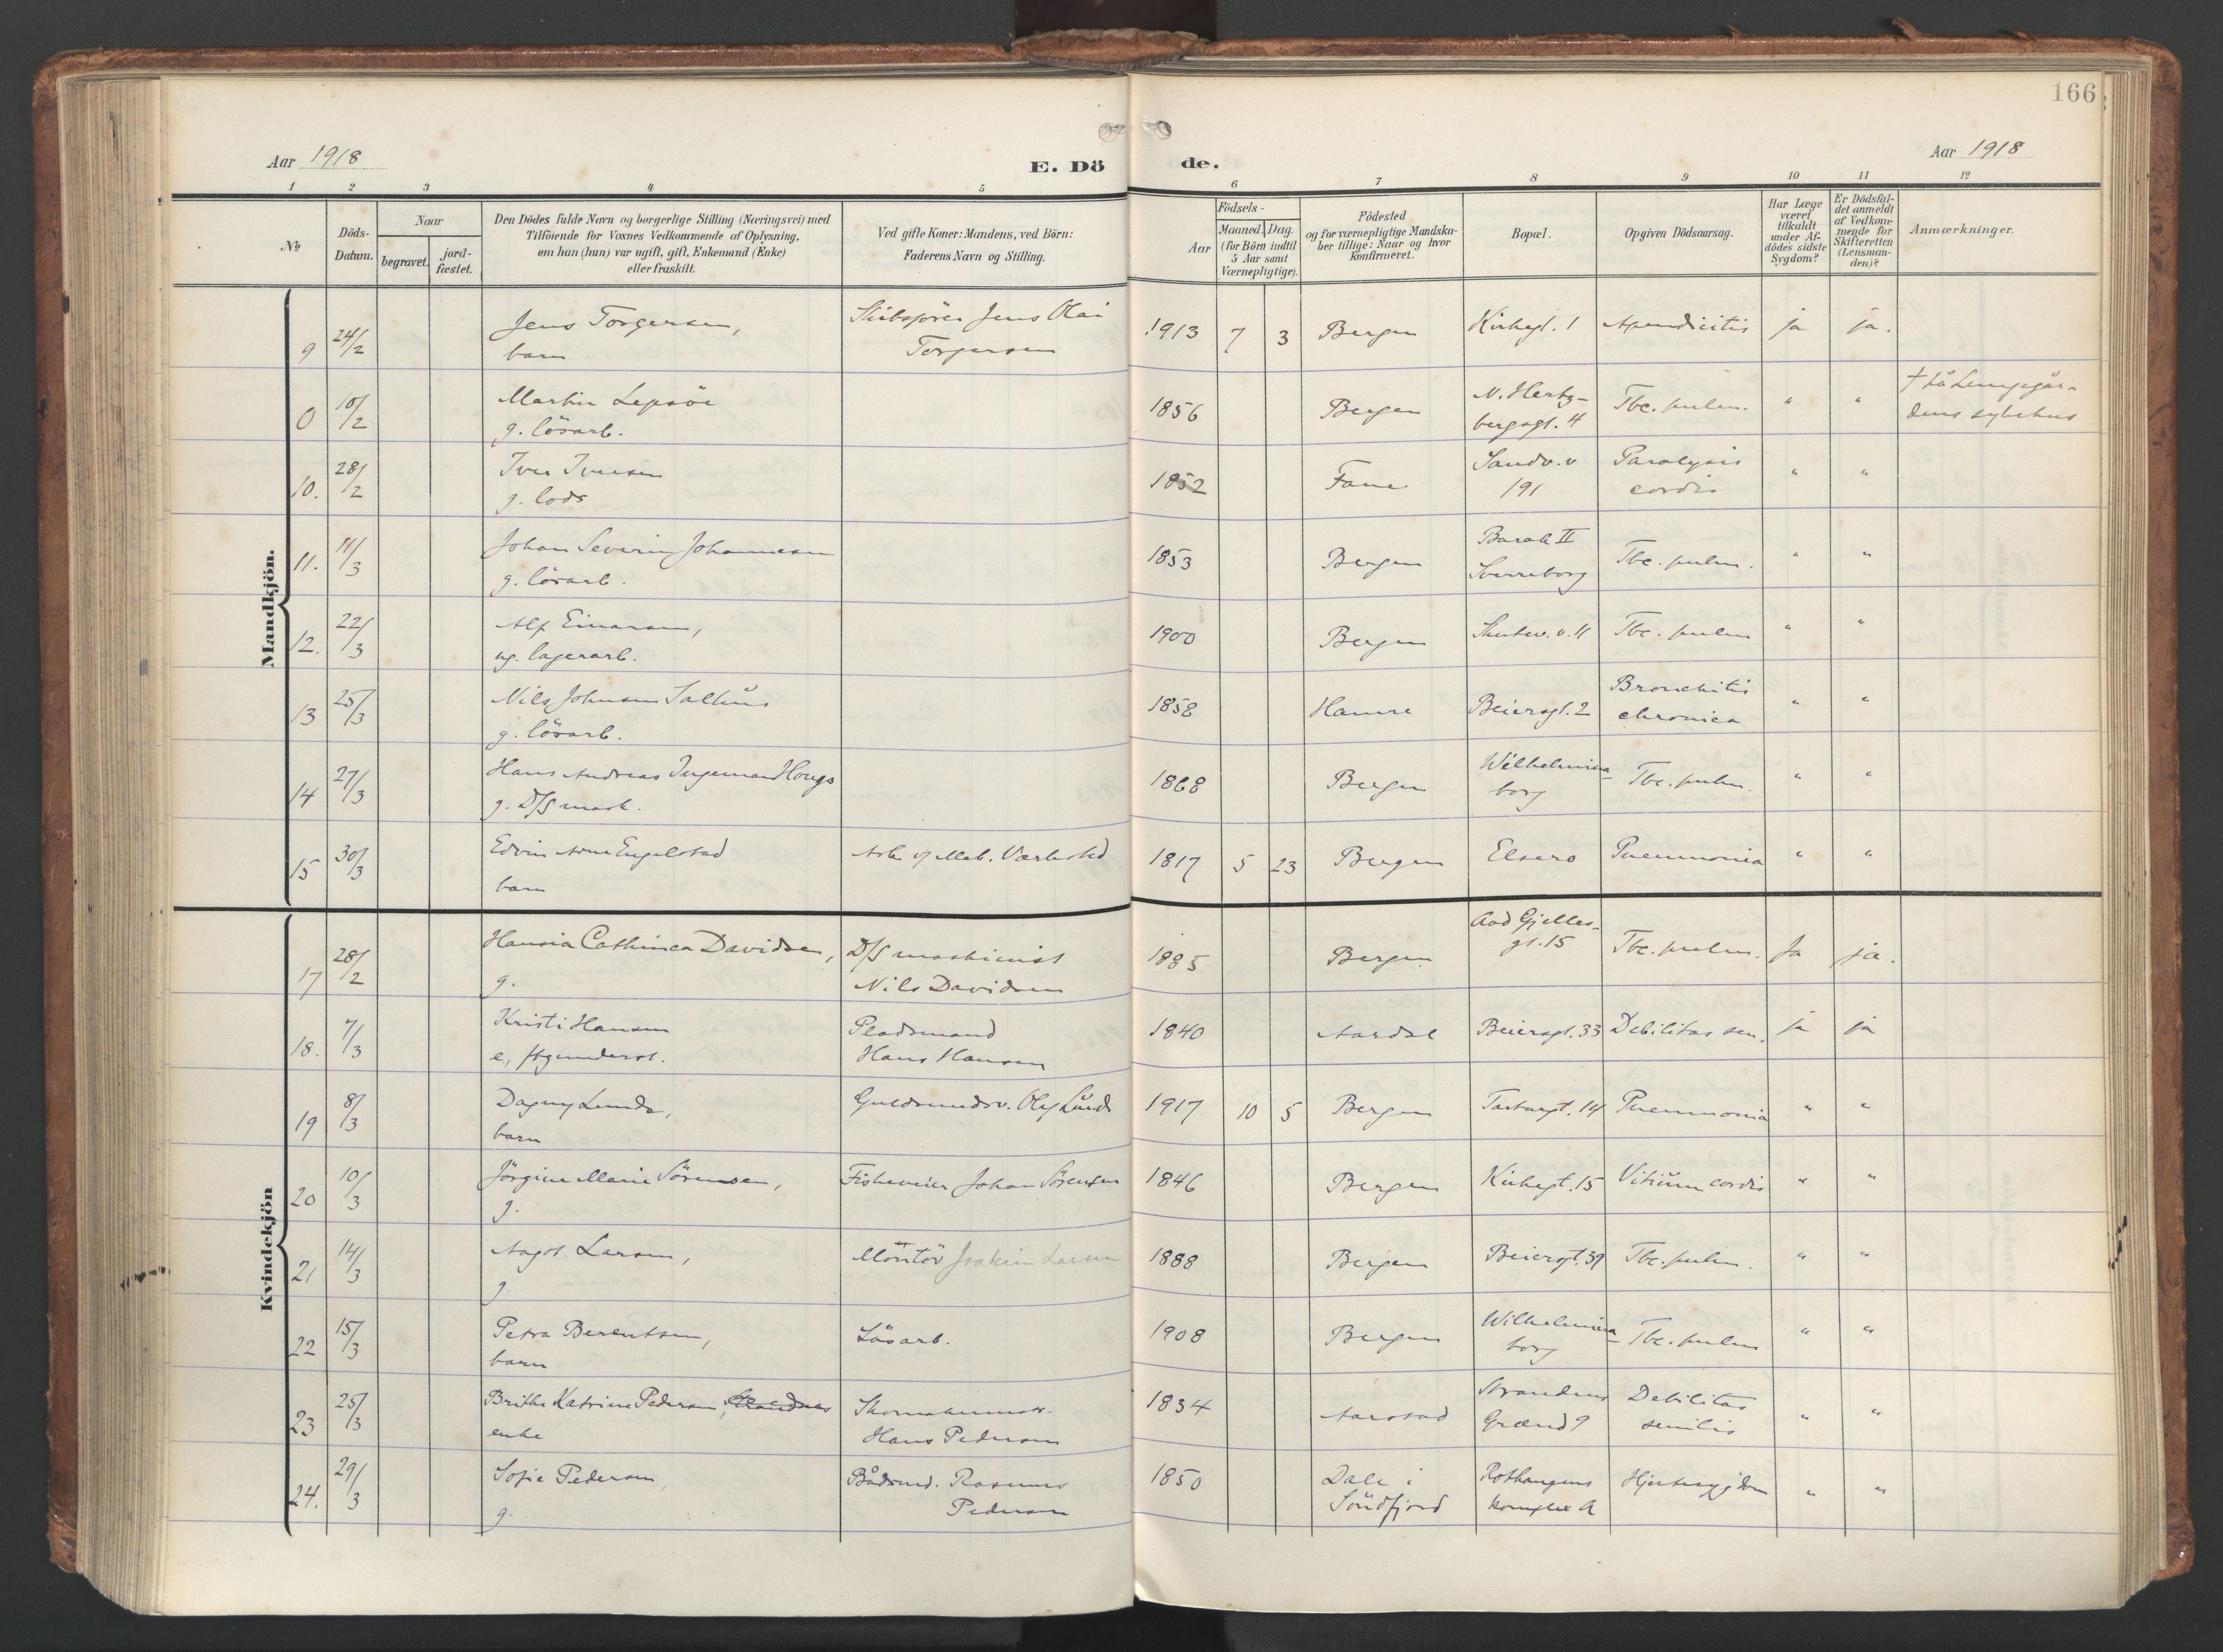 166
Aar 1918
E. Dö
de.
Aar 1918
1 2 3 4 5 6 7 8 9 10 11 12
No
Döds-
Datum.
Naar
begravet.
jord-
fæstet.
Den Dödes fulde Navn og borgerlige Stilling (Næringsvei) med
Tilföiende for Voxnes Vedkommende af Oplysning,
om han (hun) var ugift, gift, Enkemand (Enke)
eller fraskilt.
Ved gifte Koner: Mandens, ved Börn:
Faderens Navn og Stilling.
Födsels-
Aar
Maaned.
Dag.
(for Börn indtil
5 Aar samt
Værnepligtige).
Födested
og for værnepligtige Mandska-
ber tillige: Naar og hvor
konfirmeret.
Bopæl.
Opgiven Dödsaarsag.
Har Læge
været
tilkaldt
under Af-
dödes sidste
Sygdom?
Er Dödsfal-
det anmeldt
af Vedkom-
mende for
Skifteretten
(Lensman-
den)?
Anmærkninger.
Mandkjön.
9 24/2 Jens Torgersen, Skibsfører Jens Olai 1913 7 3 Bergen Kirkegt. 1 Apendicitis ja ja.
barn Torgersen
0 10/2 Martin Lepsöe 1856 Bergen N. Hertz- Tbc. pulm. " " † på Lungegår-
g. lösarb. bergsgt. 4 dens sykehus
10. 28/2 Iver Iversen 1852 Fane Sandv. v Paralysis " "
g. lods 191 cordis
11. 11/3 Johan Severin Johannesen 1853 Bergen Barak II Tbc. pulm. " "
g. lösarb. Sverreborg
12. 22/3 Alf Einarsen, 1900 Bergen Skutev. v. 11 Tbc. pulm " "
ug. lagerarb.
13 25/3 Nils Johnsen Salhus 1858 Hamre Beiersgt. 2 Bronchitis " "
g. lösarb. chronica
14 27/3 Hans Andreas Ingeman 1868 Bergen Wilhelmina- Tbc. pulm. " "
g. D/S mask. borg
15 30/3 Edvin Arne Engelstad Arb. v/ Mek. Værksted 1817 5 23 Bergen Elsero Pneumonia " "
barn
Kvindekjön
17 28/2 Hansia Cathinca Davidsen, D/S maskinist 1885 Bergen Aad Gjelles- Tbc. pulm. Ja ja.
g. Nils Davidsen gt. 15
18. 7/3 Kristi Hansen Pladsmand 1840 Aardal Beiersgt. 33 Debilitas sen. ja ja
e, Hans Hansen
19 8/3 Dagny Lunde, Guldsmedsv. Olaf Lunde 1917 10 5 Bergen Tartargt. 14 Pneumonia " "
barn
20 10/3 Jörgine Marie Sörensen, Johan Sörensen 1846 Bergen Kirkegt. 15 Vitium cordis " "
g.
21 14/3 Aagot Larsen, Montör Joakim Larsen 1888 Bergen Beiersgt. 39 Tbc. pulm. " "
g.
22 15/3 Petra Berentsen, Lösarb. 1908 Bergen Wilhelmina- Tbc. pulm " "
barn borg
23 25/3 Brithe Katrine Pedersen, Skomakermstr. 1834 Aarstad Strandens Debilitas " "
enke Hans Pedersen Grænd 9 senilis
24. 29/3 Sofie Pedersen, Bådsmd. Rasmus 1850 Dale i Rothaugens Hjertesygdom " "
g. Pedersen Söndfjord komplex A